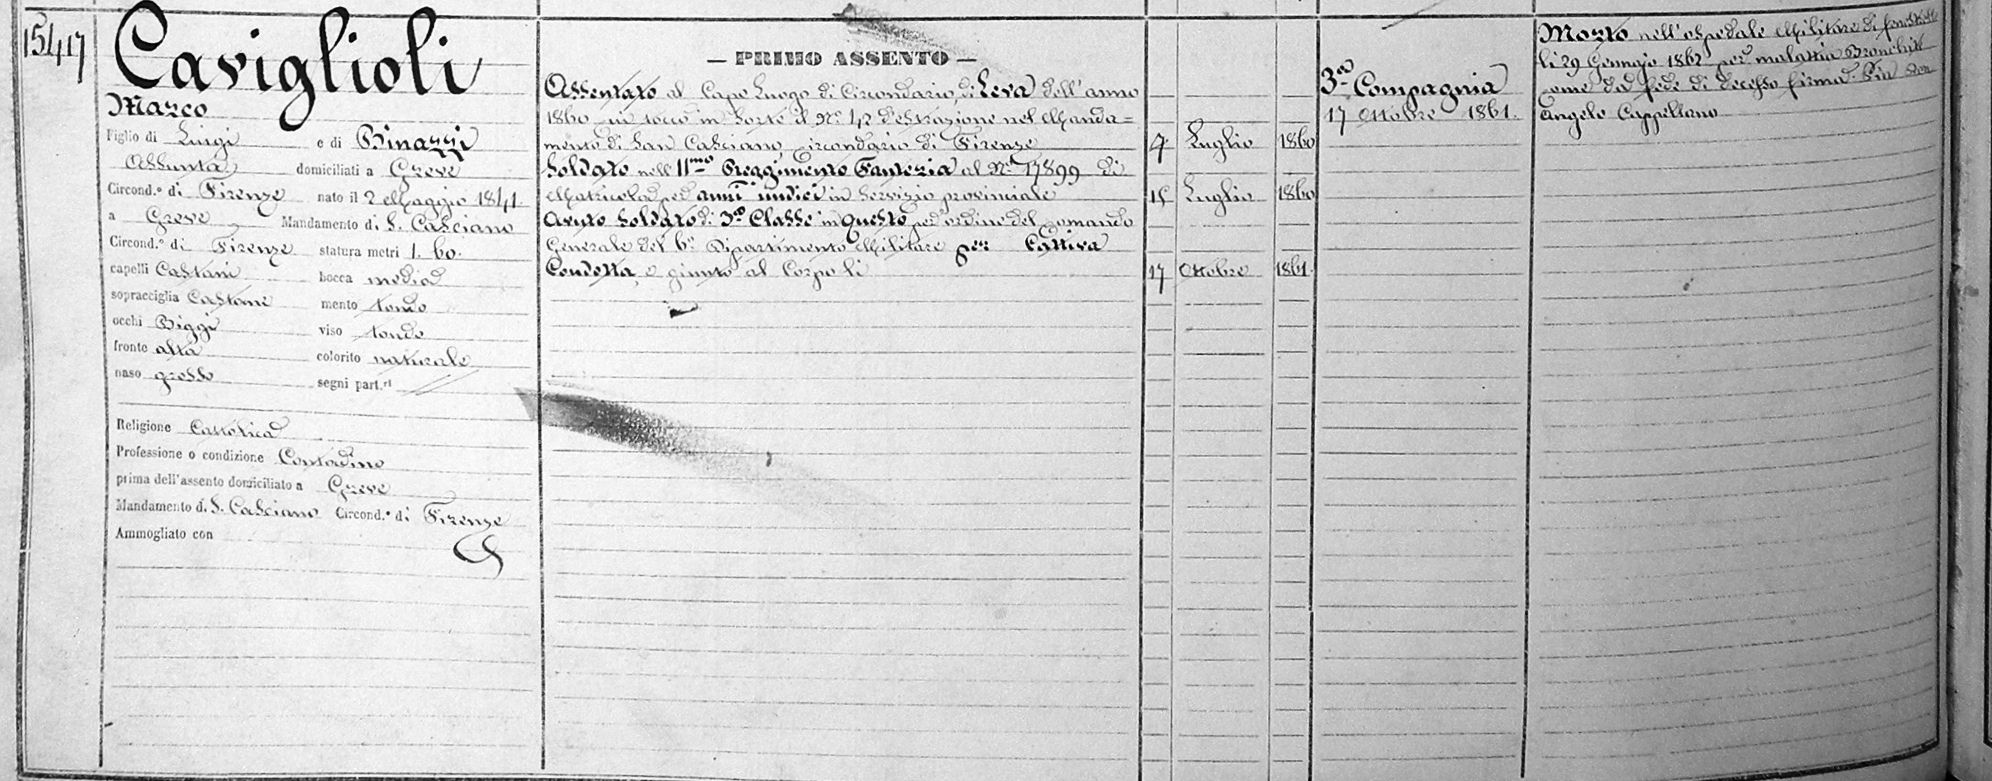 15417
Caviglioli
Marco
Figlio di Luigi e di Binazzi
Assunta domiciliati a Greve
Circond.º di Firenze nato il 2 Maggio 1841.
a Greve Mandamento di S. Casciano
Circond.º di Firenze statura metri 1. 60.
capelli Castani bocca media
sopracciglia Castani mento tondo
occhi Biggi viso tondo
fronte alta colorito naturale
naso grosso segni part.ri //
Religione Cattolica
Professione o condizione Contadino
prima dell'assento domiciliato a Greve
Mandamento di S. Casciano Circond.º di Firenze
Ammogliato con
— PRIMO ASSENTO —
Assentato al Capo Luogo di Circondario, di Leva dell'anno
1860 cui toccò in sorte il Nº 42 d'estrazione nel Manda=
mento di San Casciano circondario di Firenze 4 Luglio 1860
Soldato nell'11mo Reggimento Fanteria al Nº 17899 di
Matricola per anni undici in servizio provinciale 15 Luglio 1860
Avuto Soldato di 3ª Classe in Questo per ordine del Comando
Generale del 6º Dipartimento Militare per Cattiva
Condotta, e giunto al Corpo li 17 Ottobre 1861.
3ª Compagnia
17 Ottobre 1861.
Morto nell'ospedale Militare di
li 29 Gennajo 1862 per malattia Bronchite
come da fede di decesso firmad. Pia Don
Angelo Cappellano